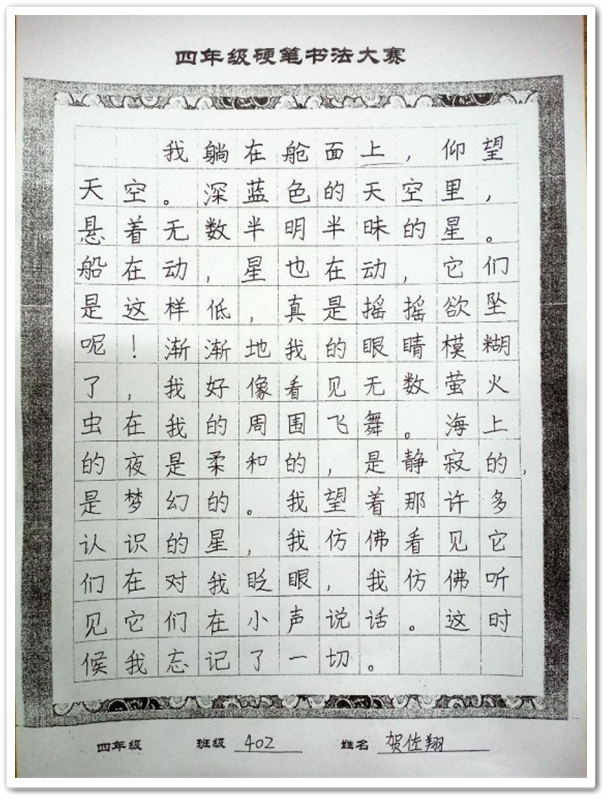 四年级硬笔书法大赛
我躺在舱面上，仰望
天空。深蓝色的天空里，
悬着无数半明半昧的星。
船在动，星也在动，它们
是这样低，真是摇摇欲坠
呢！渐渐地我的眼睛模糊
了，我好像看见无数萤火
虫在我的周围飞舞。海上
的夜是柔和的，是静寂的，
是梦幻的。我望着那许多
认识的星，我仿佛看见它
们在对我眨眼，我仿佛听
见它们在小声说话。这时
候我忘记了一切。
四年级 班级 402 姓名 贺佐翔